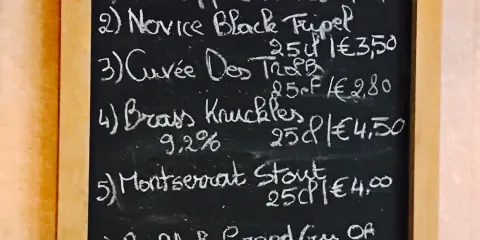 2) Novice Black Tripel
25cl | €3,50
3) Cuvée Des Trolls
25cl | €2,80
4) Brass Knuckles
9,2% 25cl | €4,50
5) Montserrat Stout
25cl | €4,00